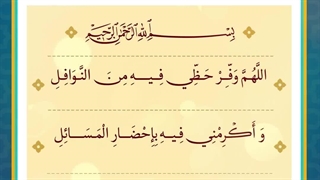 بِسْمِ اللهِ الرَّحْمَنِ الرَّحِيمِ
اللَّهُمَّ وَفِّرْ حَظِّي فِيهِ مِنَ النَّوَافِلِ
وَ أَكْرِمْنِي فِيهِ بِإِحْضَارِ الْمَسَائِلِ